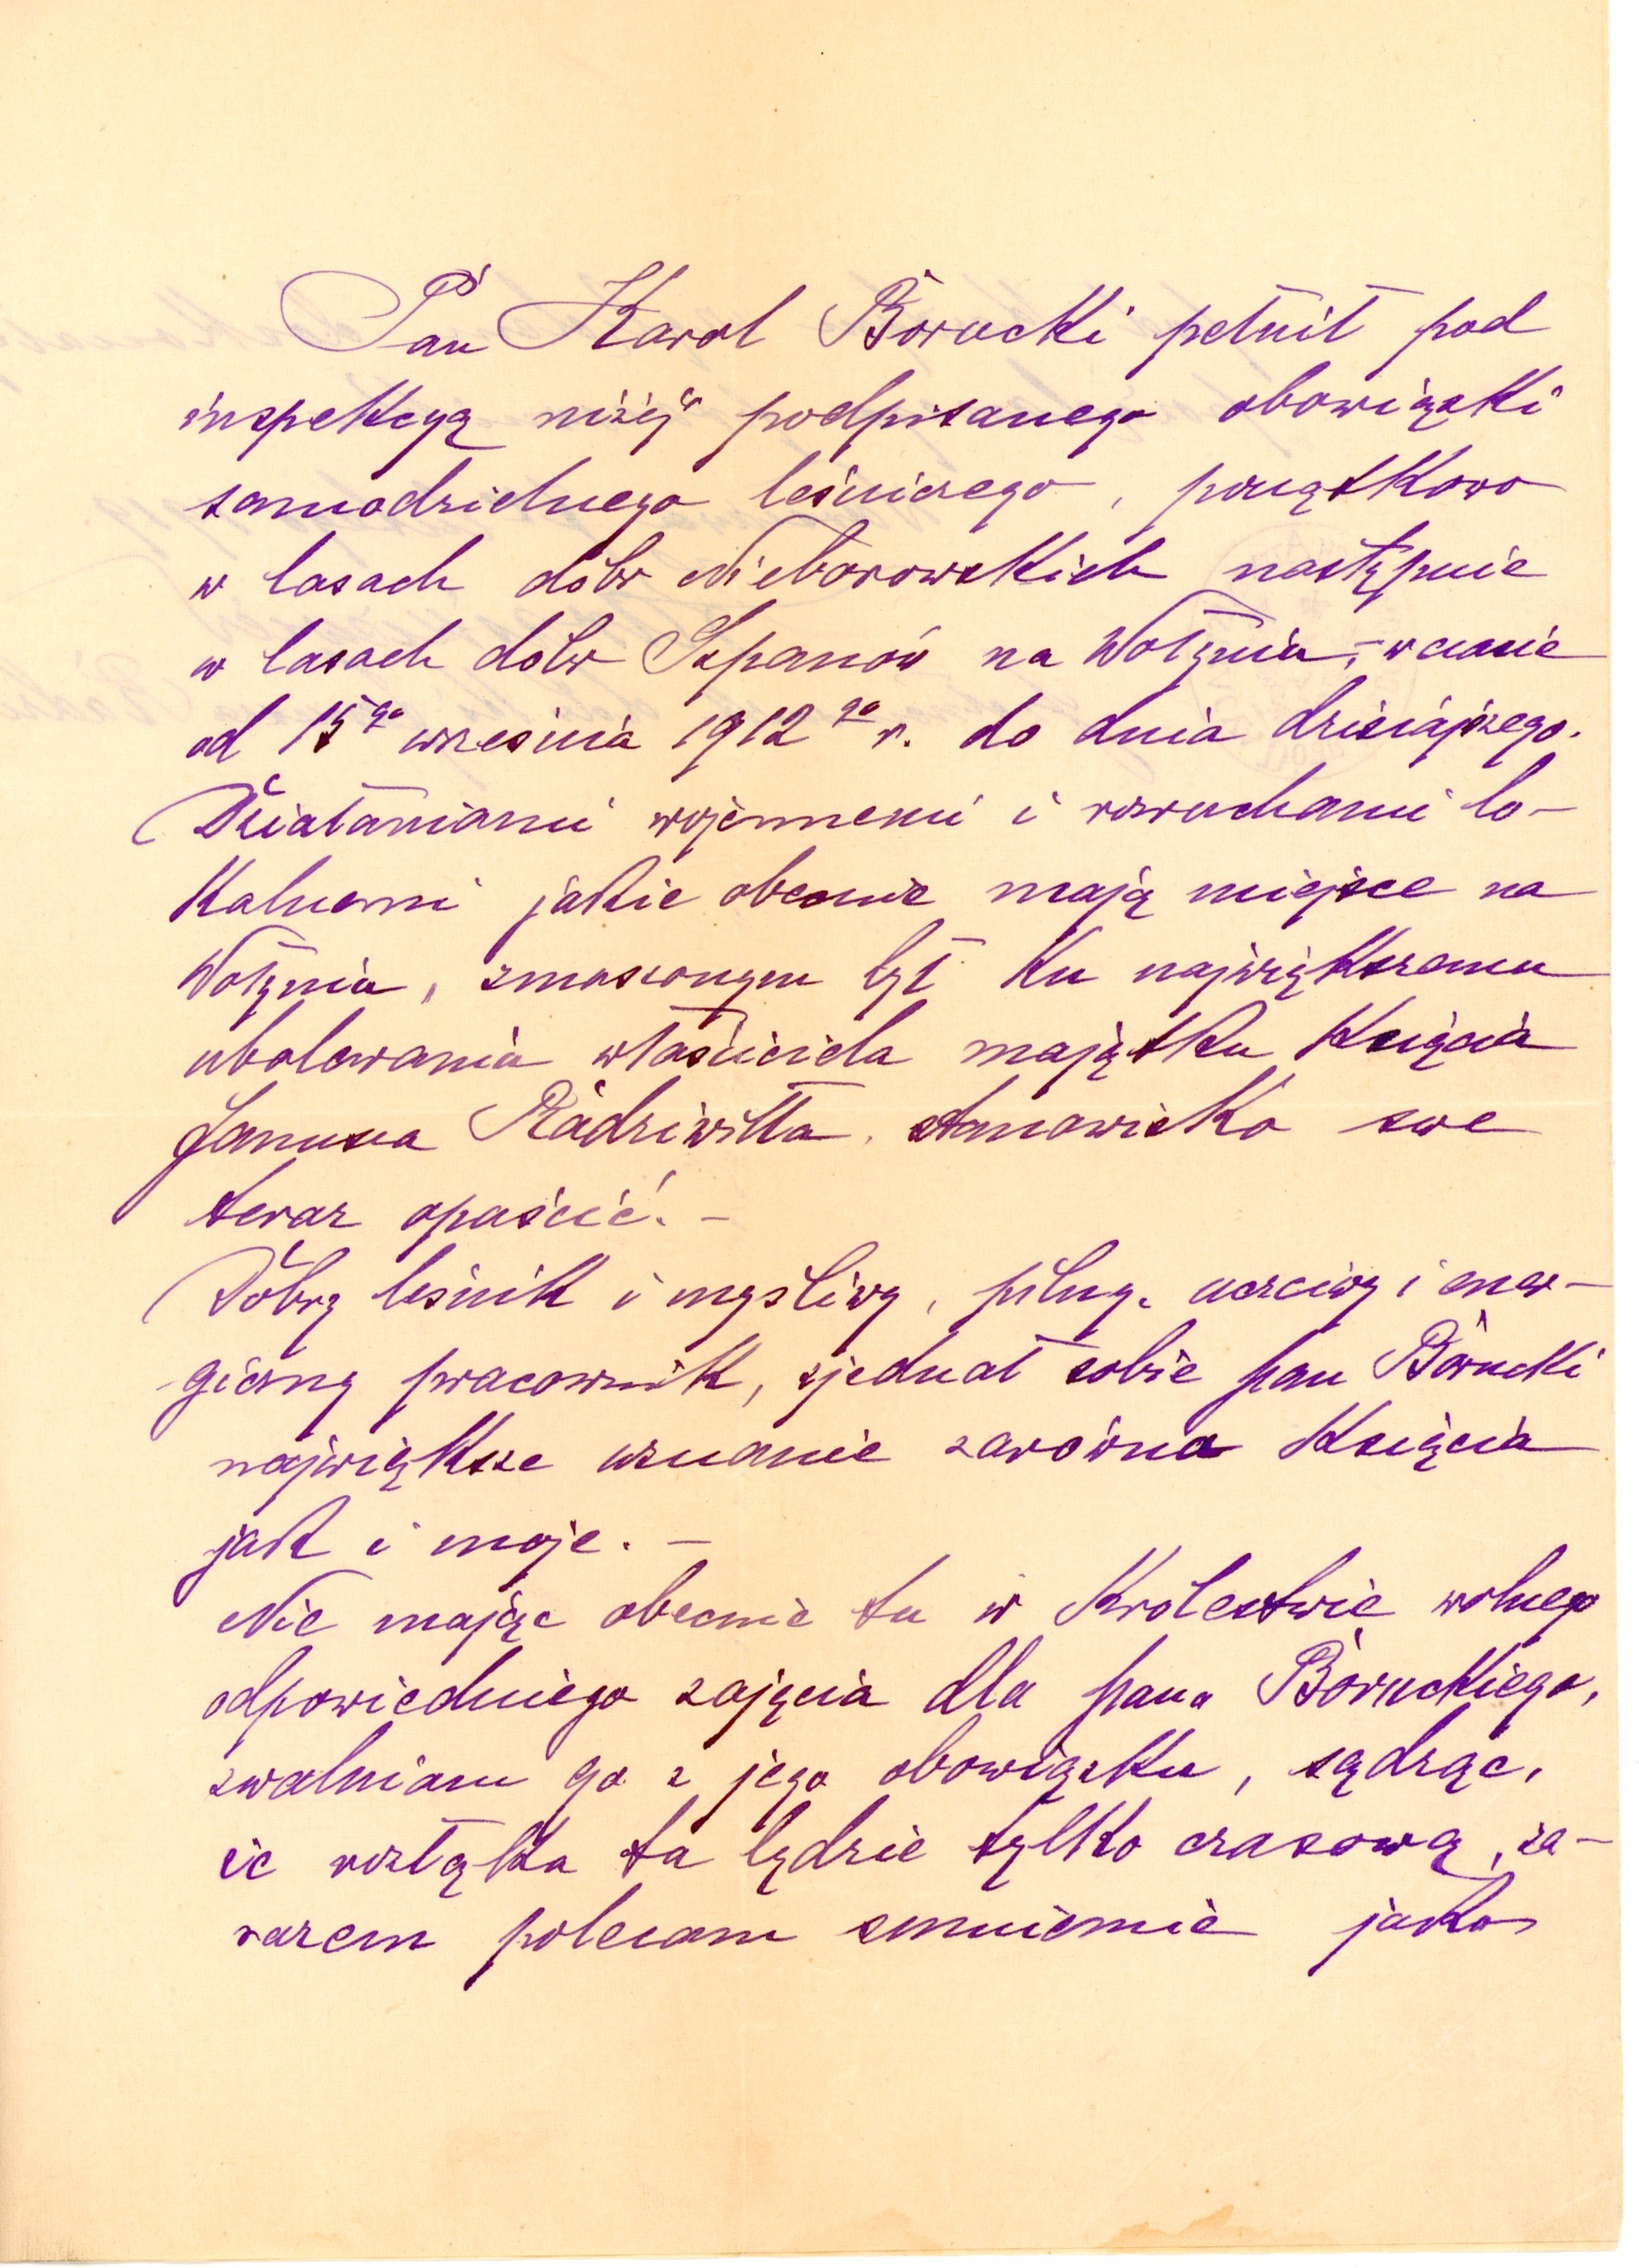 Pan Karol Borucki pełnił pod
inspekcyą niżej podpisanego obowiązki
samodzielnego leśniczego, początkowo
w lasach dóbr Nieborowskich następnie
w lasach dóbr Szpanów na Wołyniu, – w czasie
od 15go września 1912go r. do dnia dzisiajszego.
Działaniami wojennemi i rozruchami lo-
kalnemi jakie obecnie mają miejsce na
Wołyniu, zmuszonym był ku największemu
ubolewaniu właściciela majątku Księcia
Janusza Radziwiłła, stanowisko swe
teraz opuścić. –
Dobry leśnik i myśliwy, pilny, uczciwy i ener-
giczny pracownik, zjednał sobie pan Borucki
największe uznanie zarówno Księcia
jak i moje. –
Nie mając obecnie tu w Królestwie wolnego
odpowiedniego zajęcia dla pana Boruckiego,
zwalniam go z jego obowiązku, sądząc,
że rozłąka ta będzie tylko czasową, za-
razem polecam sumiennie jako